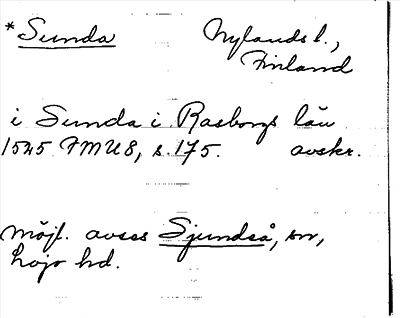 *Sunda Nylands l.,
Finland
i Sunda i Rasborgs län
1525 FMU 8, s. 175. avskr.
möjl. avses Sjundeå, sn,
Lojo hd.